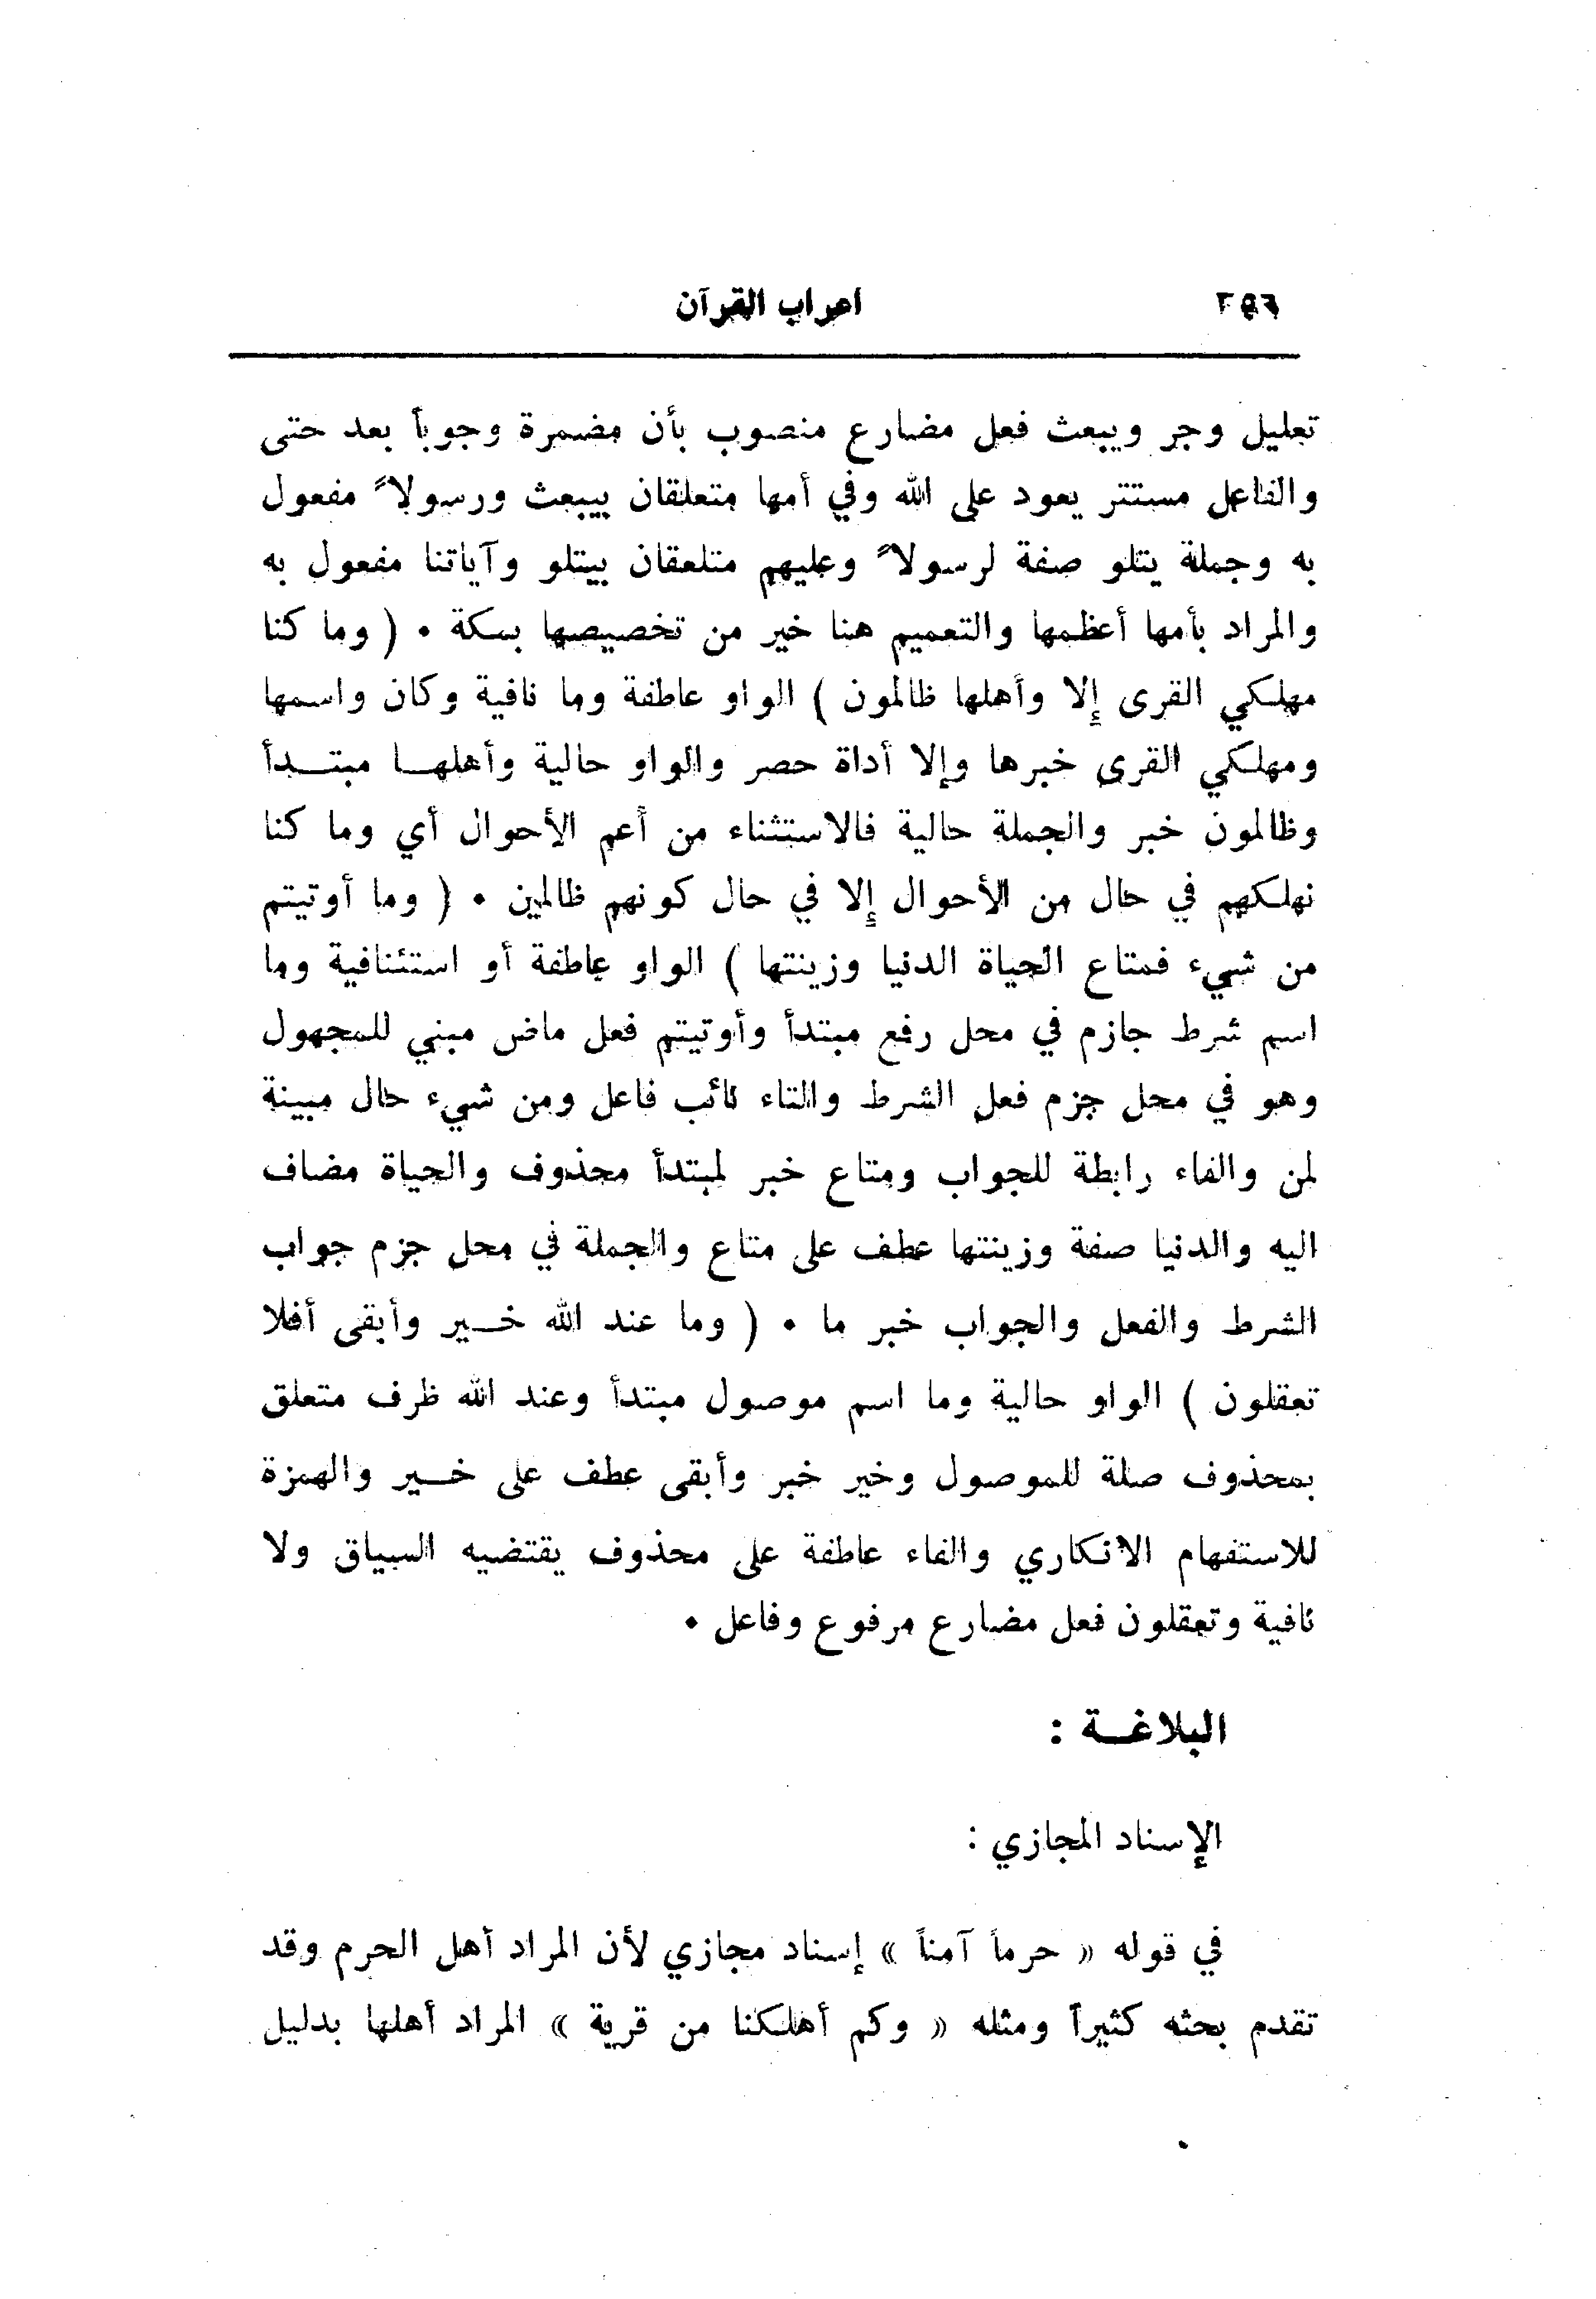 ٣٥٦ اعراب القرآن
تعليل وجر ويبعث فعل مضارع منصوب بأن مضمرة وجوباً بعد حتى
والفاعل مستتر يعود على الله وفي أمها متعلقان بيبعث ورسولاً مفعول
به وجملة يتلو صفة لرسولاً وعليهم متلعقان بيتلو وآياتنا مفعول به
والمراد بأمها أعظمها والتعميم هنا خير من تخصيصها بمكة ٠ ( وما كنا
مهلكي القرى إلا وأهلها ظالمون ) الواو عاطفة وما نافية وكان واسمها
ومهلكي القرى خبرها وإلا أداة حصر والواو حالية وأهلهـا مبتـدأ
وظالمون خبر والجملة حالية فالاستثناء من أعم الأحوال أي وما كنا
نهلكهم في حال من الأحوال إلا في حال كونهم ظالمين ٠ ( وما أوتيتم
من شيء فمتاع الحياة الدنيا وزينتها ) الواو عاطفة أو استئنافية وما
اسم شرط جازم في محل رفع مبتدأ وأوتيتم فعل ماض مبني للمجهول
وهو في محل جزم فعل الشرط والتاء نائب فاعل ومن شيء حال مبينة
لمن والفاء رابطة للجواب ومتاع خبر لمبتدأ محذوف والحياة مضاف
اليه والدنيا صفة وزينتها عطف على متاع والجملة في محل جزم جواب
الشرط والفعل والجواب خبر ما ٠ ( وما عند الله خـير وأبقى أفلا
تعقلون ) الواو حالية وما اسم موصول مبتدأ وعند الله ظرف متعلق
بمحذوف صلة للموصول وخير خبر وأبقى عطف على خـير والهمزة
للاستفهام الانكاري والفاء عاطفة على محذوف يقتضيه السياق ولا
نافية وتعقلون فعل مضارع مرفوع وفاعل ٠
البلاغـة :
الإسناد المجازي :
في قوله « حرماً آمناً » إسناد مجازي لأن المراد أهل الحرم وقد
تقدم بحثه كثيراً ومثله « وكم أهلكنا من قرية » المراد أهلها بدليل